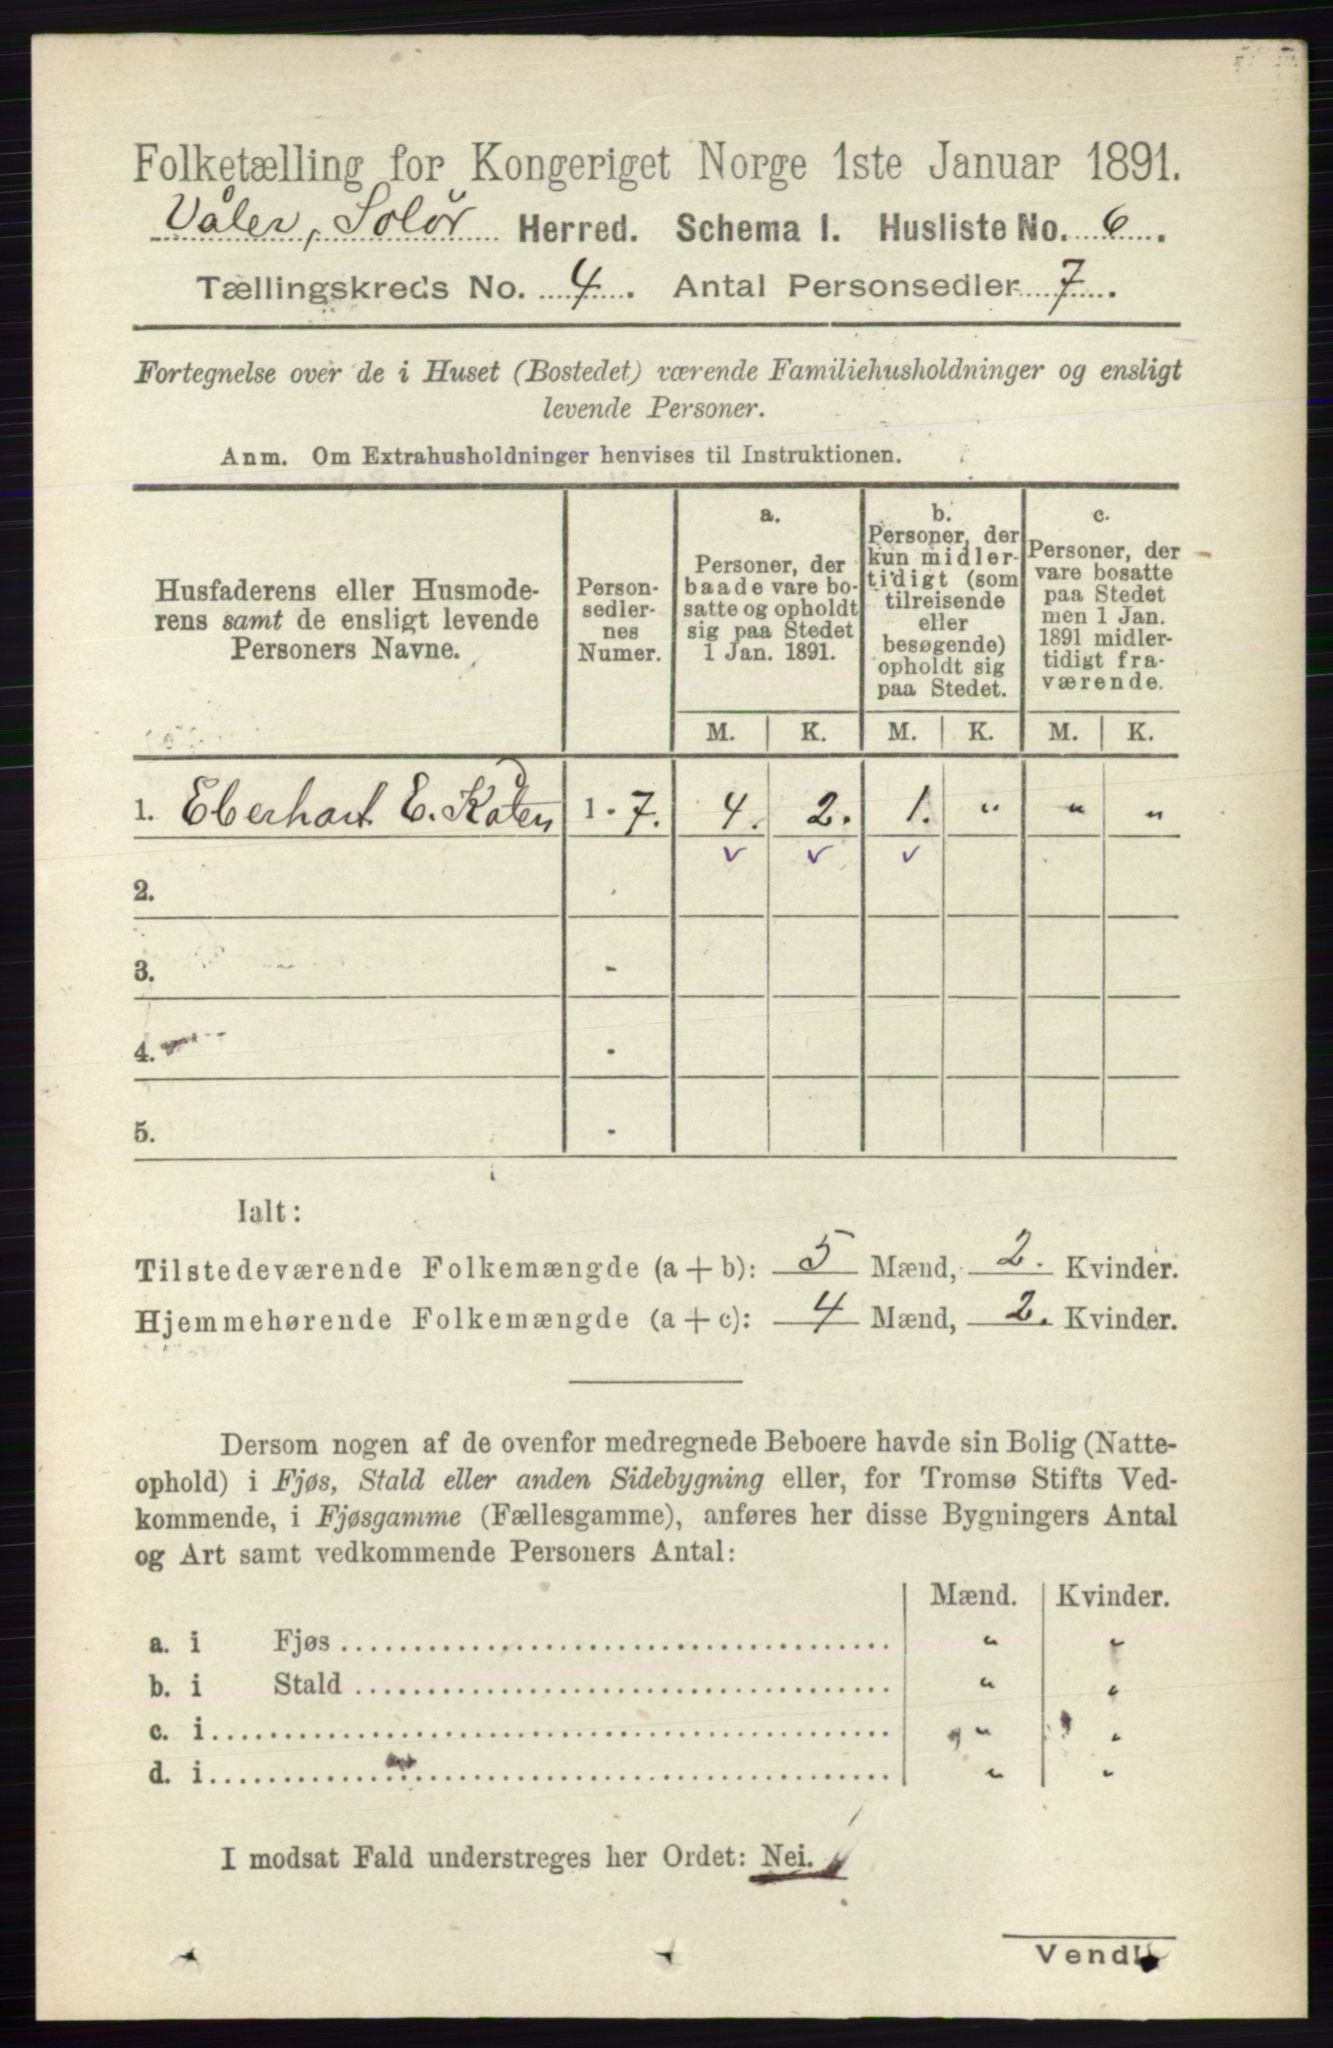 Folketælling for Kongeriget Norge 1ste Januar 1891.
Våler, Solør Herred. Schema I. Husliste No. 6.
Tællingskreds No. 4. Antal Personsedler 7.
Fortegnelse over de i Huset (Bostedet) værende Familiehusholdninger og ensligt
levende Personer.
Anm. Om Extrahusholdninger henvises til Instruktionen.
Husfaderens eller Husmode-
rens samt de ensligt levende
Personers Navne.
Person-
sedler-
nes
Numer.
a.
Personer, der
baade vare bo-
satte og opholdt
sig paa Stedet
1 Jan. 1891.
b.
Personer, der
kun midler-
tidigt (som
tilreisende
eller
besøgende)
opholdt sig
paa Stedet.
c.
Personer, der
vare bosatte
paa Stedet
men 1 Jan.
1891 midler-
tidigt fra-
værende.
M. K. M. K. M. K.
1. Eberhart E. 1 - 7. 4. 2. 1. " " "
2.
3. -
4. -
5. -
Ialt:
Tilstedeværende Folkemængde (a + b): 5 Mænd, 2. Kvinder.
Hjemmehørende Folkemængde (a + c): 4 Mænd, 2. Kvinder.
Dersom nogen af de ovenfor medregnede Beboere havde sin Bolig (Natte-
ophold) i Fjøs, Stald eller anden Sidebygning eller, for Tromsø Stifts Ved-
kommende, i Fjøsgamme (Fællesgamme), anføres her disse Bygningers Antal
og Art samt vedkommende Personers Antal:
Mænd. Kvinder.
a. i Fjøs " "
b. i Stald " "
c. i " "
d. i " "
I modsat Fald understreges her Ordet: Nei.
Vend!